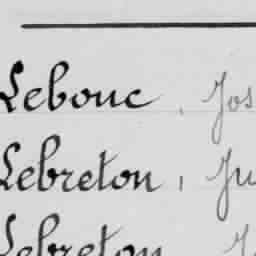 Lebouc, Jos
Lebreton, Ju
Lebreton J